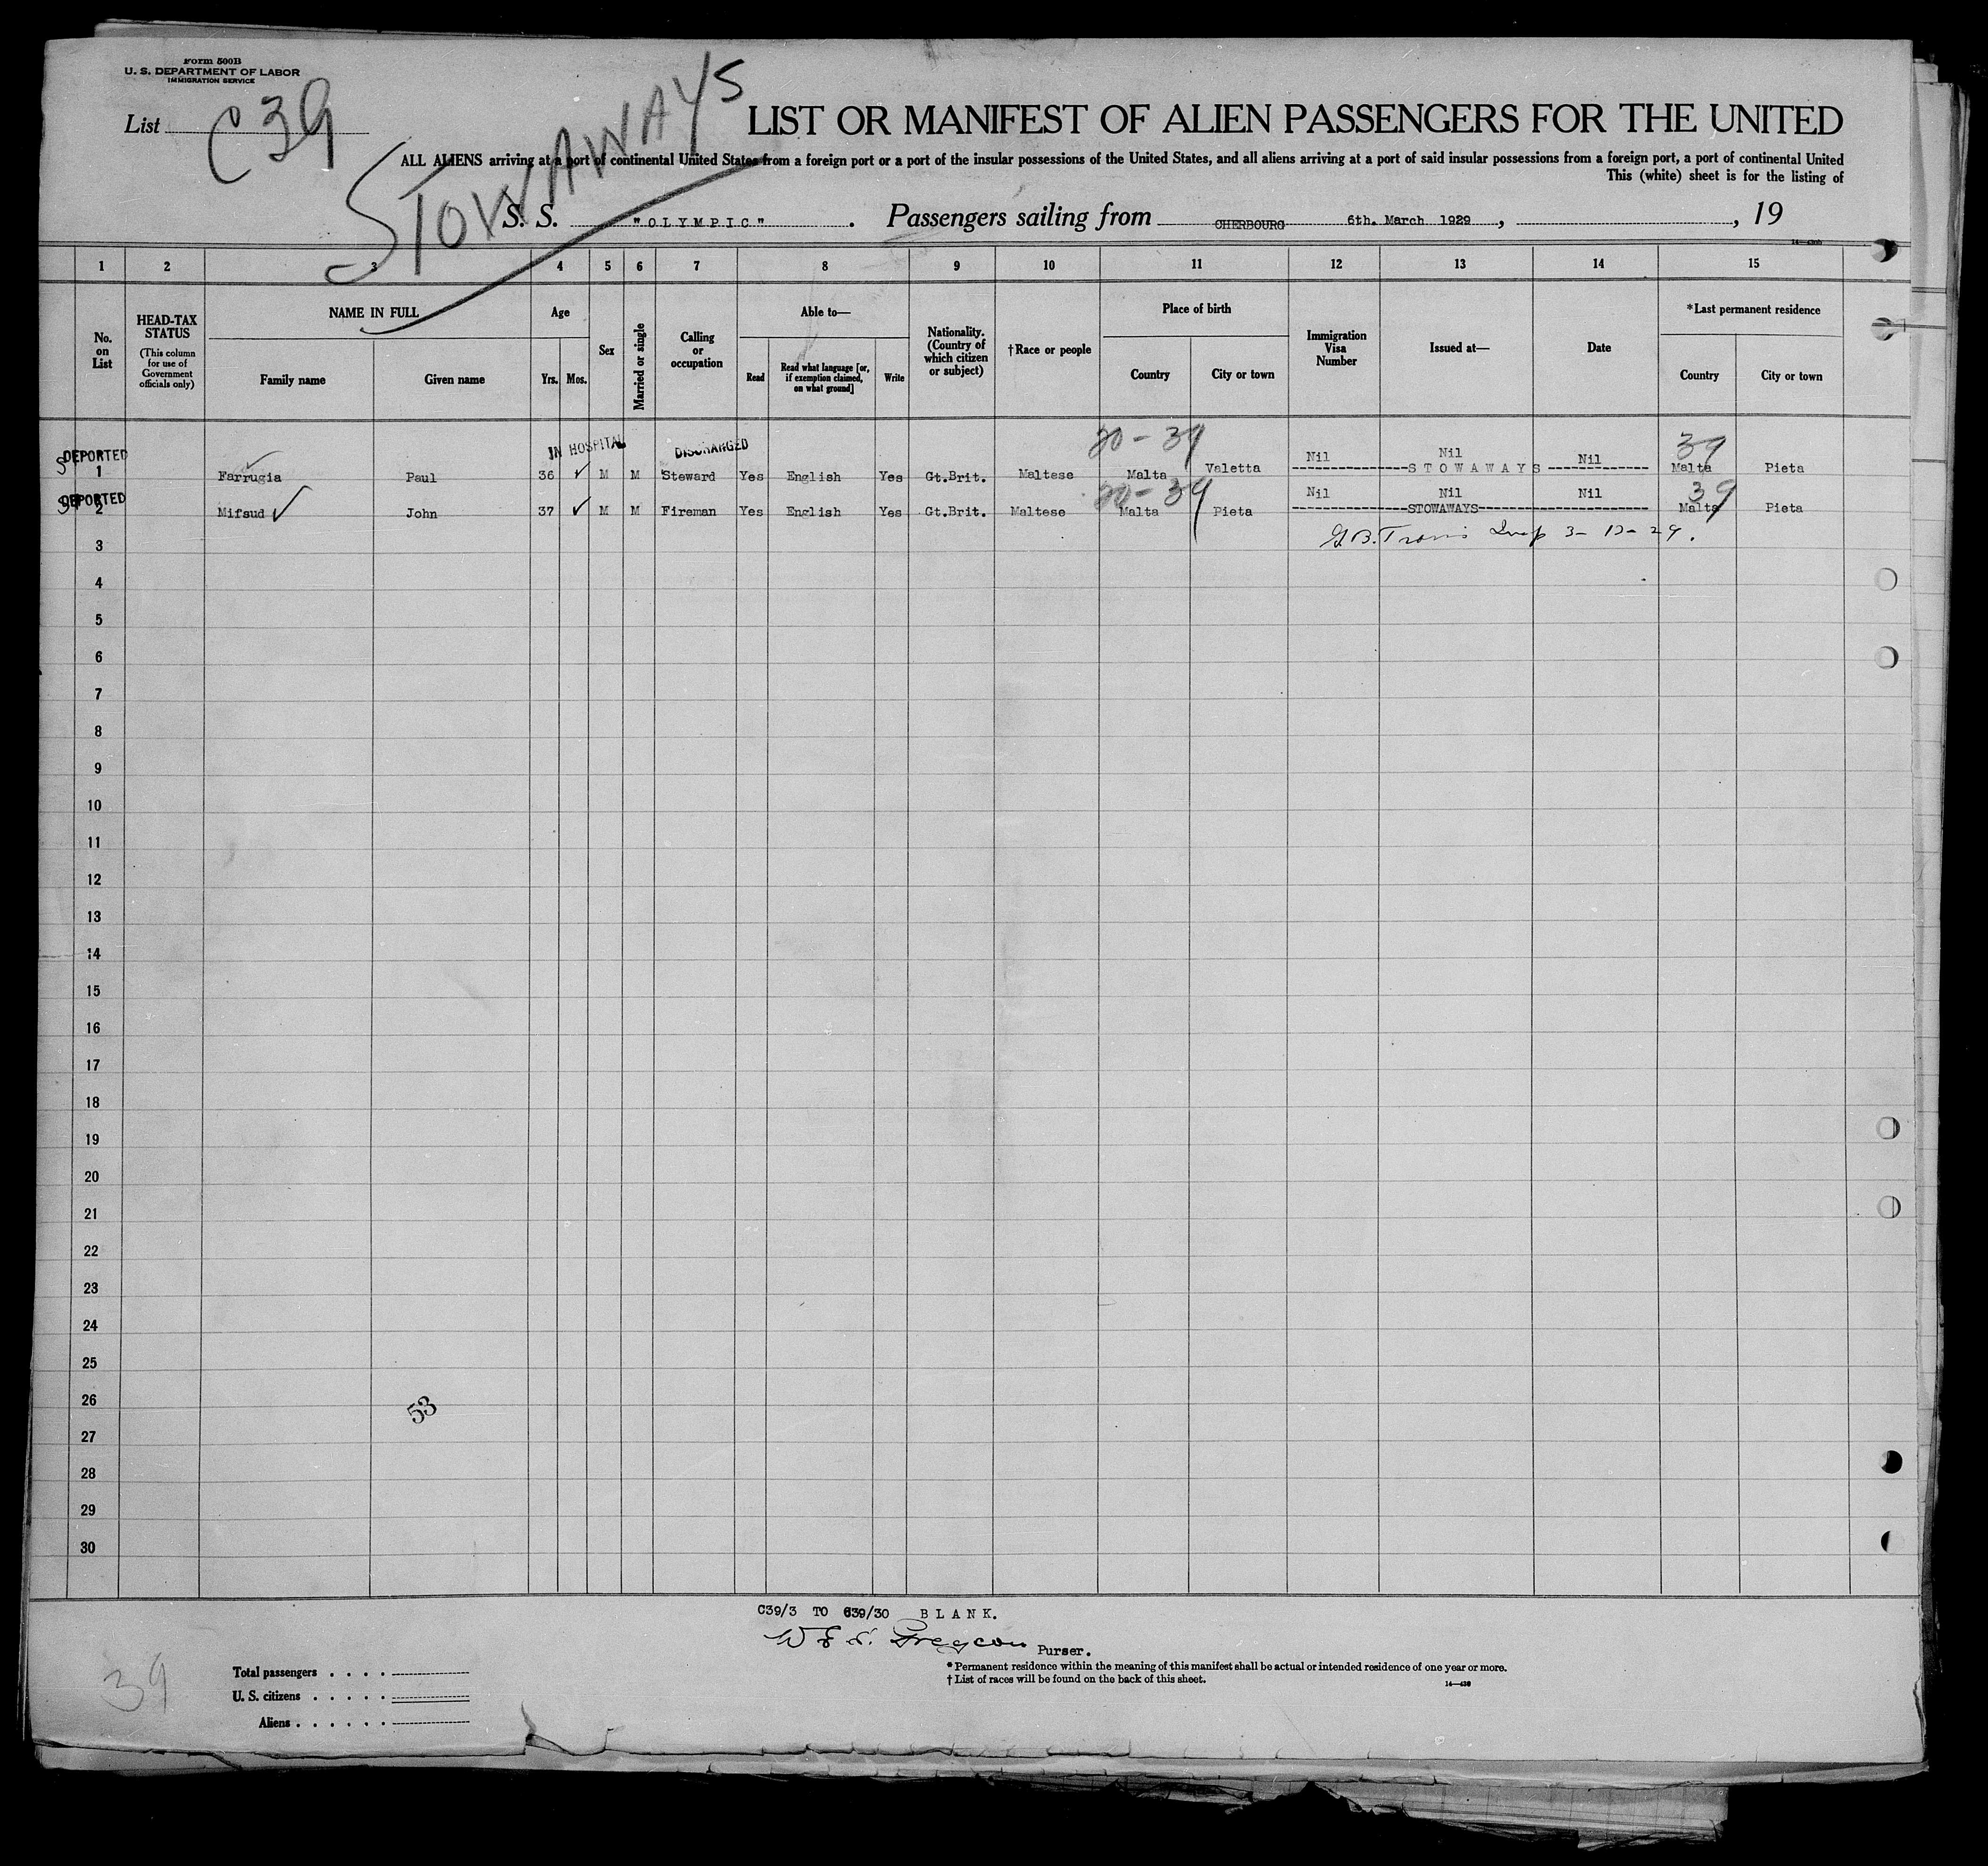 Form 500B
U. S. DEPARTMENT OF LABOR
IMMIGRATION SERVICE
List C39
STOWAWAYS
LIST OR MANIFEST OF ALIEN PASSENGERS FOR THE UNITED
ALL ALIENS arriving at a port of continental United States from a foreign port or a port of the insular possessions of the United States, and all aliens arriving at a port of said insular possessions from a foreign port, a port of continental United
This (white) sheet is for the listing of
S. S. "OLYMPIC". Passengers sailing from CHERBOURG 6th. March 1929, , 19
1 2 3 4 5 6 7 8 9 10 11 12 13 14 15
No. on List
HEAD-TAX STATUS (This column for use of Government officials only)
NAME IN FULL
Family name Given name
Age
Yrs. Mos.
Sex
Married or single
Calling or occupation
Able to—
Read
Read what language [or, if exemption claimed, on what ground]
Write
Nationality. (Country of which citizen or subject)
†Race or people
Place of birth
Country City or town
Immigration Visa Number
Issued at—
Date
*Last permanent residence
Country City or town
DEPORTED IN HOSPITAL DISCHARGED 20-39 39
Nil Nil Nil
1 Farrugia Paul 36 M M Steward Yes English Yes Gt.Brit. Maltese Malta Valetta STOWAWAYS Malta Pieta
DEPORTED 20-39 Nil Nil Nil 39
2 Mifsud John 37 M M Fireman Yes English Yes Gt.Brit. Maltese Malta Pieta STOWAWAYS Malta Pieta
3
4
5
6
7
8
9
10
11
12
13
14
15
16
17
18
19
20
21
22
23
24
25
26
53
27
28
29
30
C39/3 TO C39/30 BLANK.
Purser.
*Permanent residence within the meaning of this manifest shall be actual or intended residence of one year or more.
†List of races will be found on the back of this sheet.
14—430
39
Total passengers . . . .
U. S. citizens . . . . .
Aliens . . . . . .